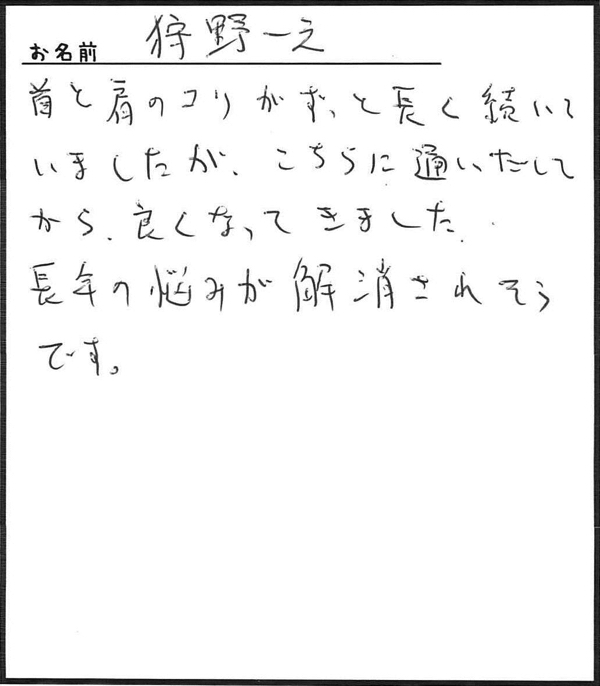 お名前 狩野一之
首と肩のコリがずっと長く続いて
いましたが、こちらに通いだして
から、良くなってきました。
長年の悩みが解消されそう
です。